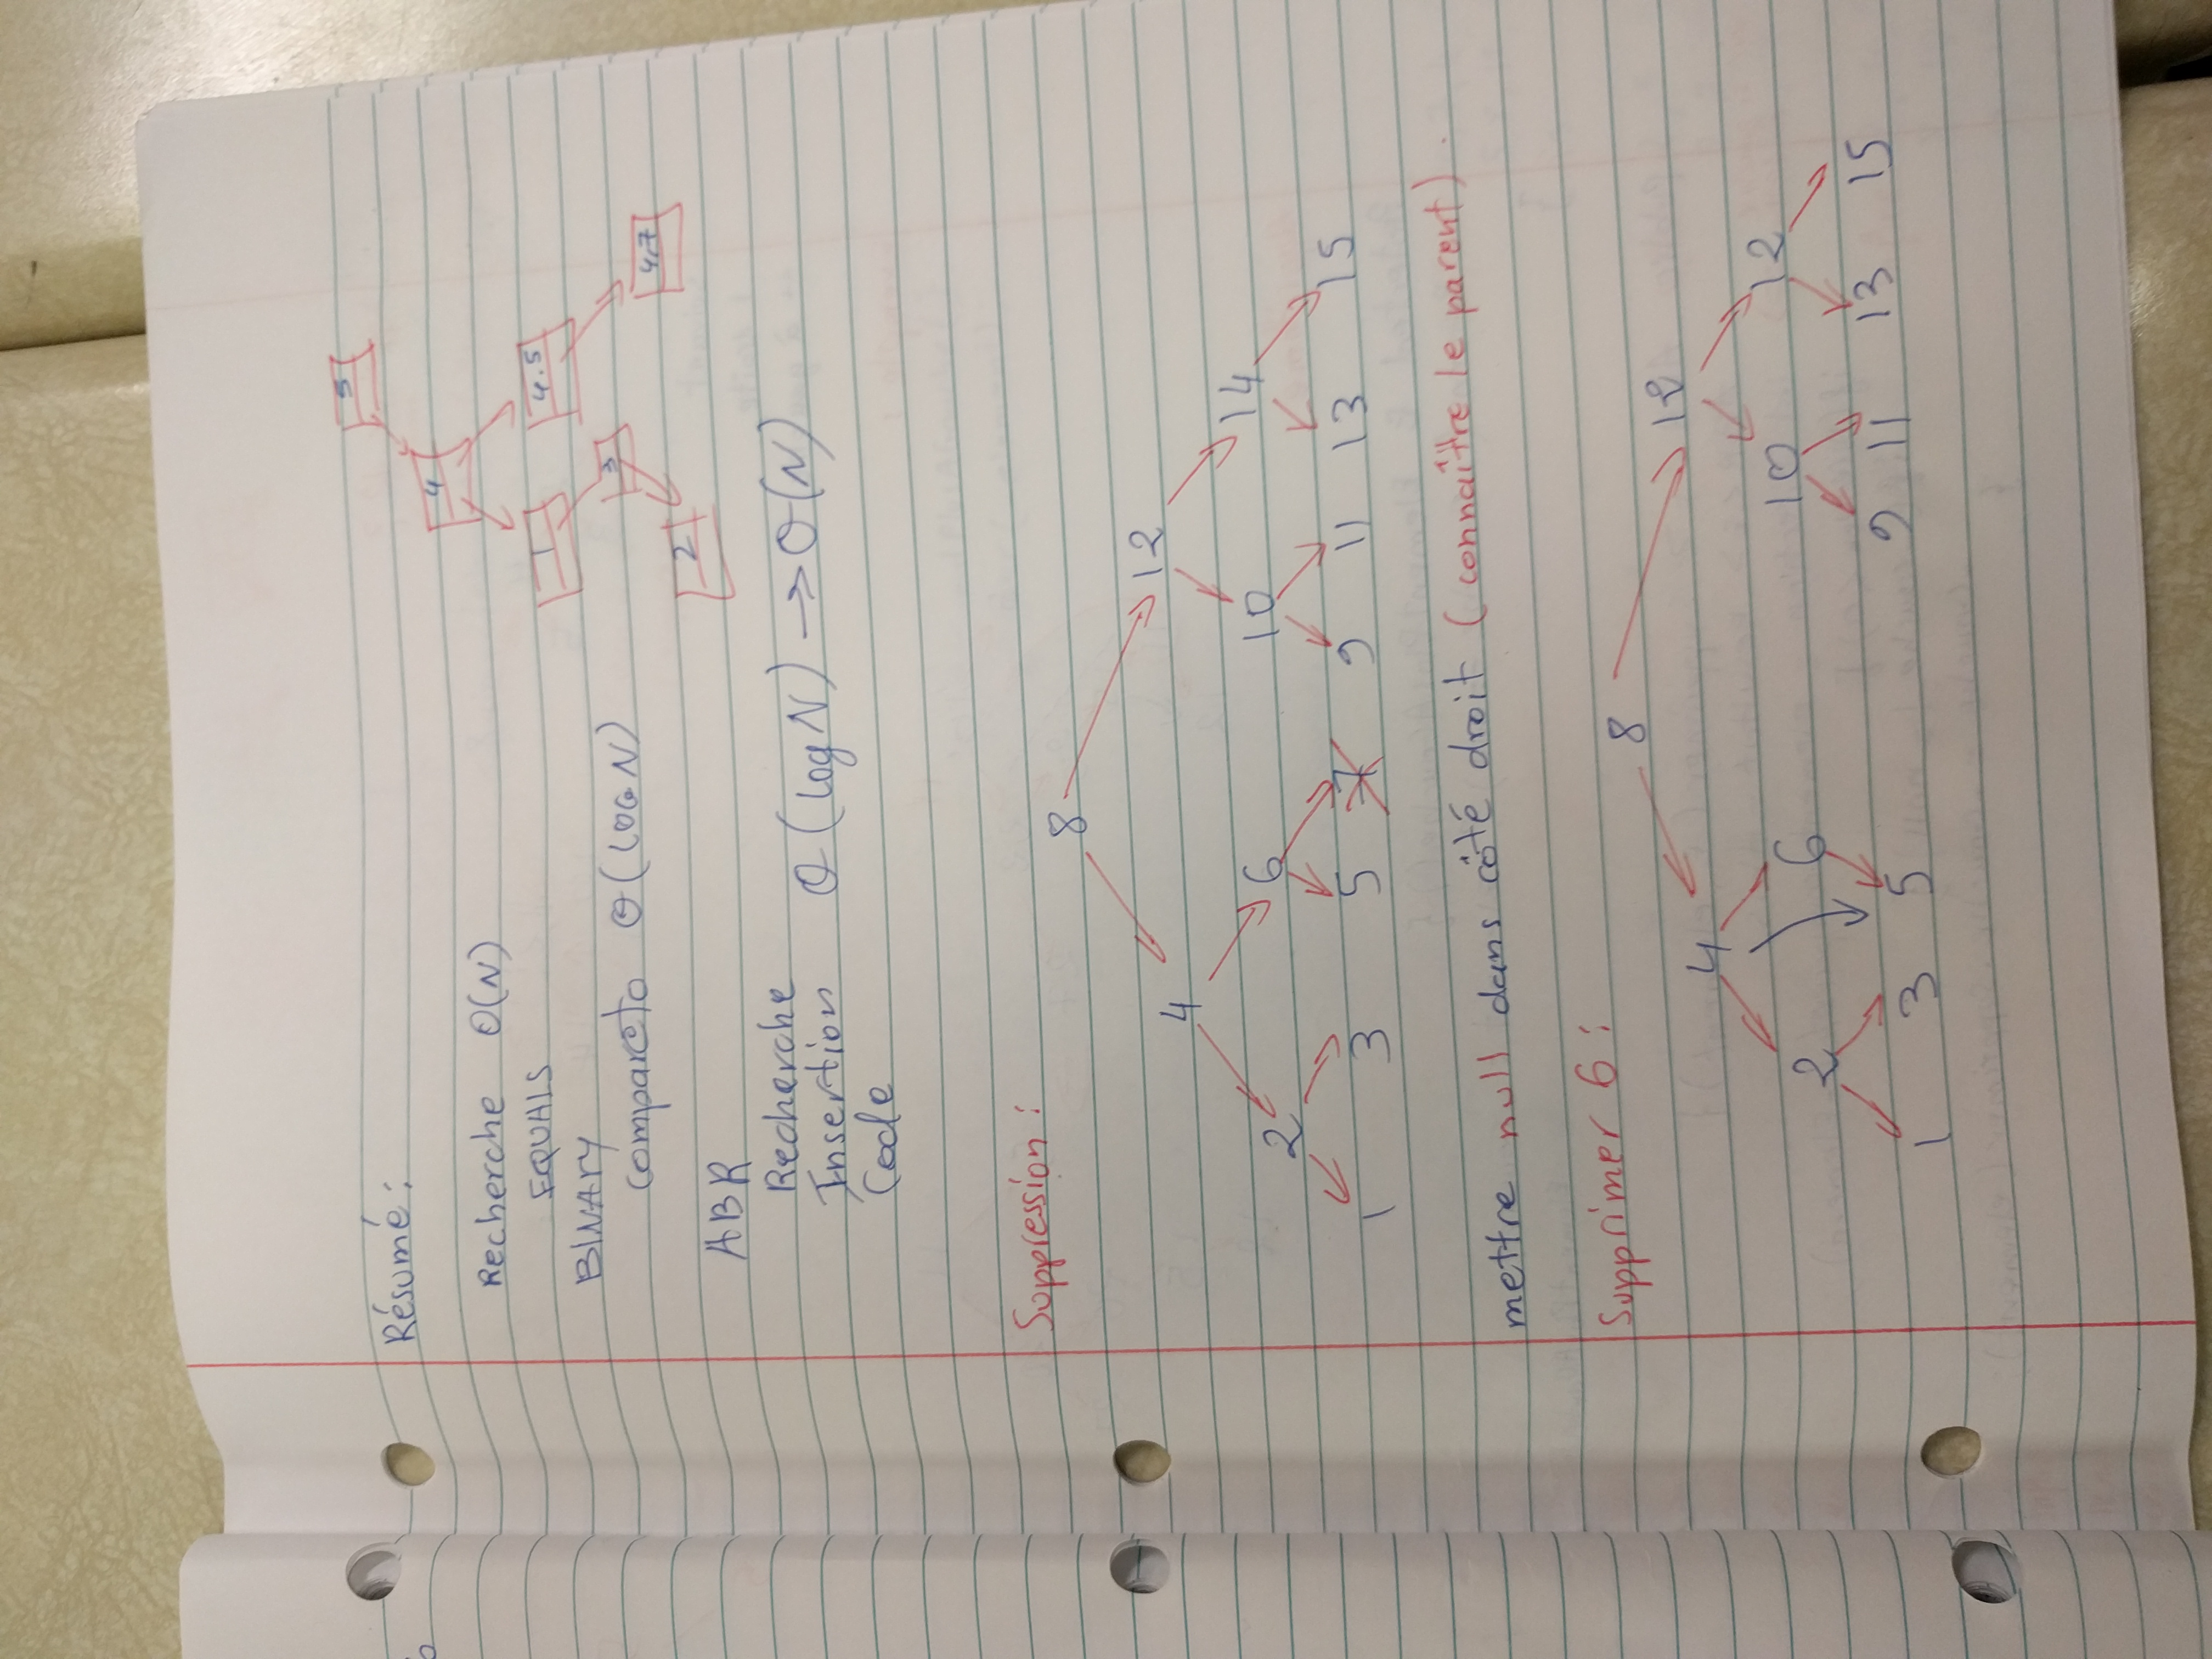 Résumé :
5
4
Recherche Θ(N)
EQUALS
1 4.5
BINARY
compareto Θ(LOG N)
3
4,7
2
ABR
Recherche
Insertion Θ(log N) → Θ(N)
Code
Suppression :
8
4 12
2 6 10 14
1 3 5 7 9 11 13 15
mettre null dans côté droit (connaître le parent).
Supprimer 6 :
8
4 12
2 6 10 12
1 3 5 9 11 13 15